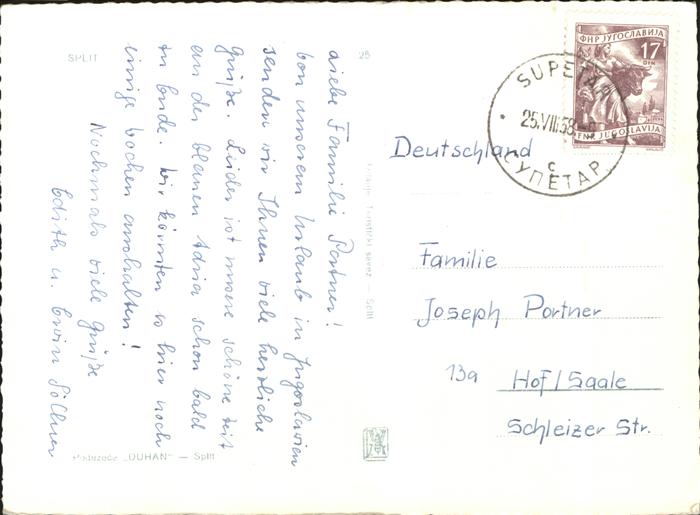 SPLIT
25
Liebe Familie Portner!
Von unserem Urlaub in Jugoslavien
senden wir Ihnen viele herzliche
Grüße. Leider ist unsere schöne Zeit
an der blauen Adria schon bald
zu Ende. Wir könnten es hier noch
einige Wochen aushalten!
Nochmals viele Grüße
Edith u. Erwin Söllner
Poduzeće „DUHAN" — Split
Turistički savez — Split
ФНР ЈУГОСЛАВИЈА
17
DIN
FNR JUGOSLAVIJA
SUPETAR
25.VIII.58
c
СУПЕТАР
Deutschland
Familie
Joseph Portner
13a Hof/Saale
Schleizer Str.